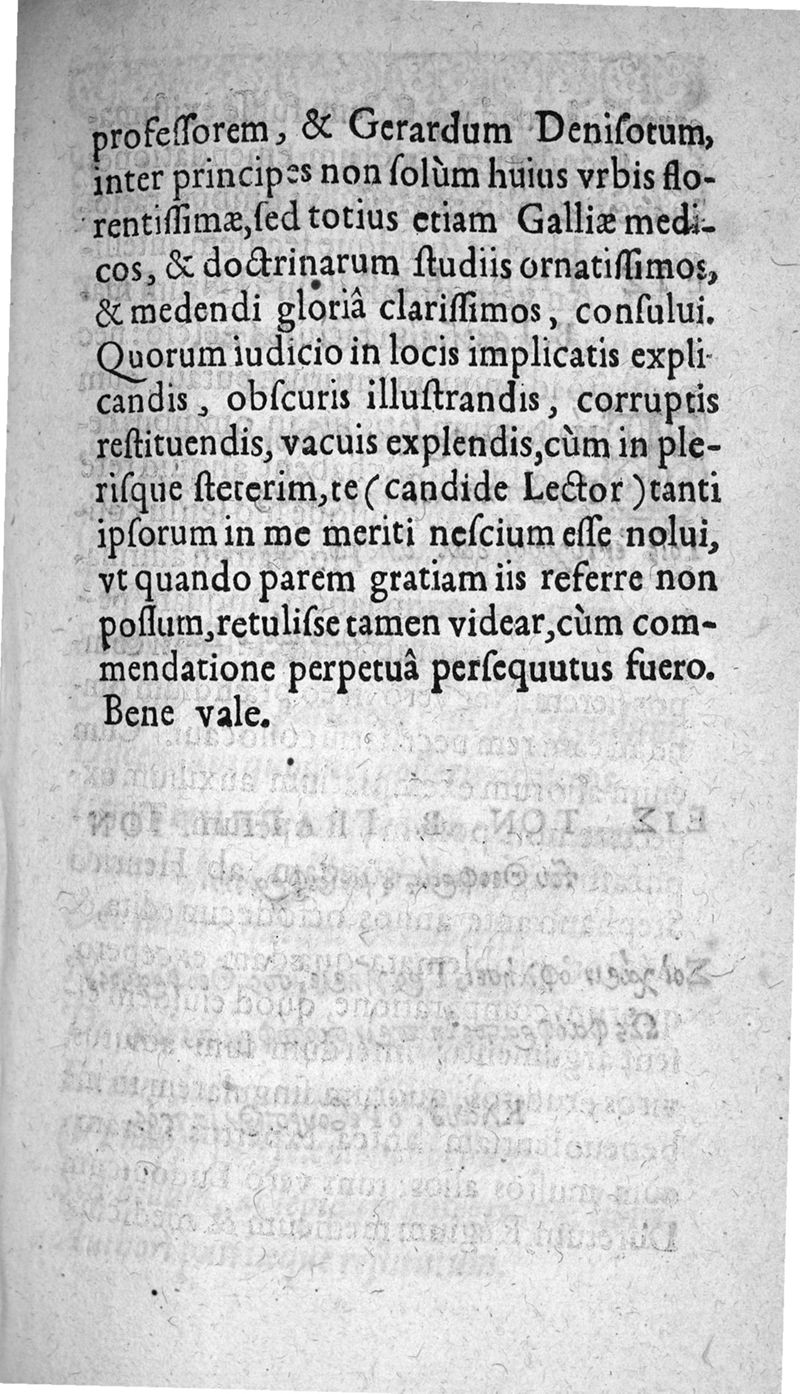 profeſſorem, & Gerardum Deniſotum,
inter principes non ſolùm huius vrbis flo-
rentiſſimæ, ſed totius etiam Galliæ medi-
cos, & doctrinarum ſtudiis ornatiſſimos,
& medendi gloriâ clariſſimos, conſului.
Quorum iudicio in locis implicatis expli-
candis, obſcuris illuſtrandis, corruptis
reſtituendis, vacuis explendis, cùm in ple-
riſque ſteterim, te (candide Lector) tanti
ipſorum in me meriti neſcium eſſe nolui,
vt quando parem gratiam iis referre non
poſſum, retuliſſe tamen videar, cùm com-
mendatione perpetuâ perſequutus fuero.
Bene vale.